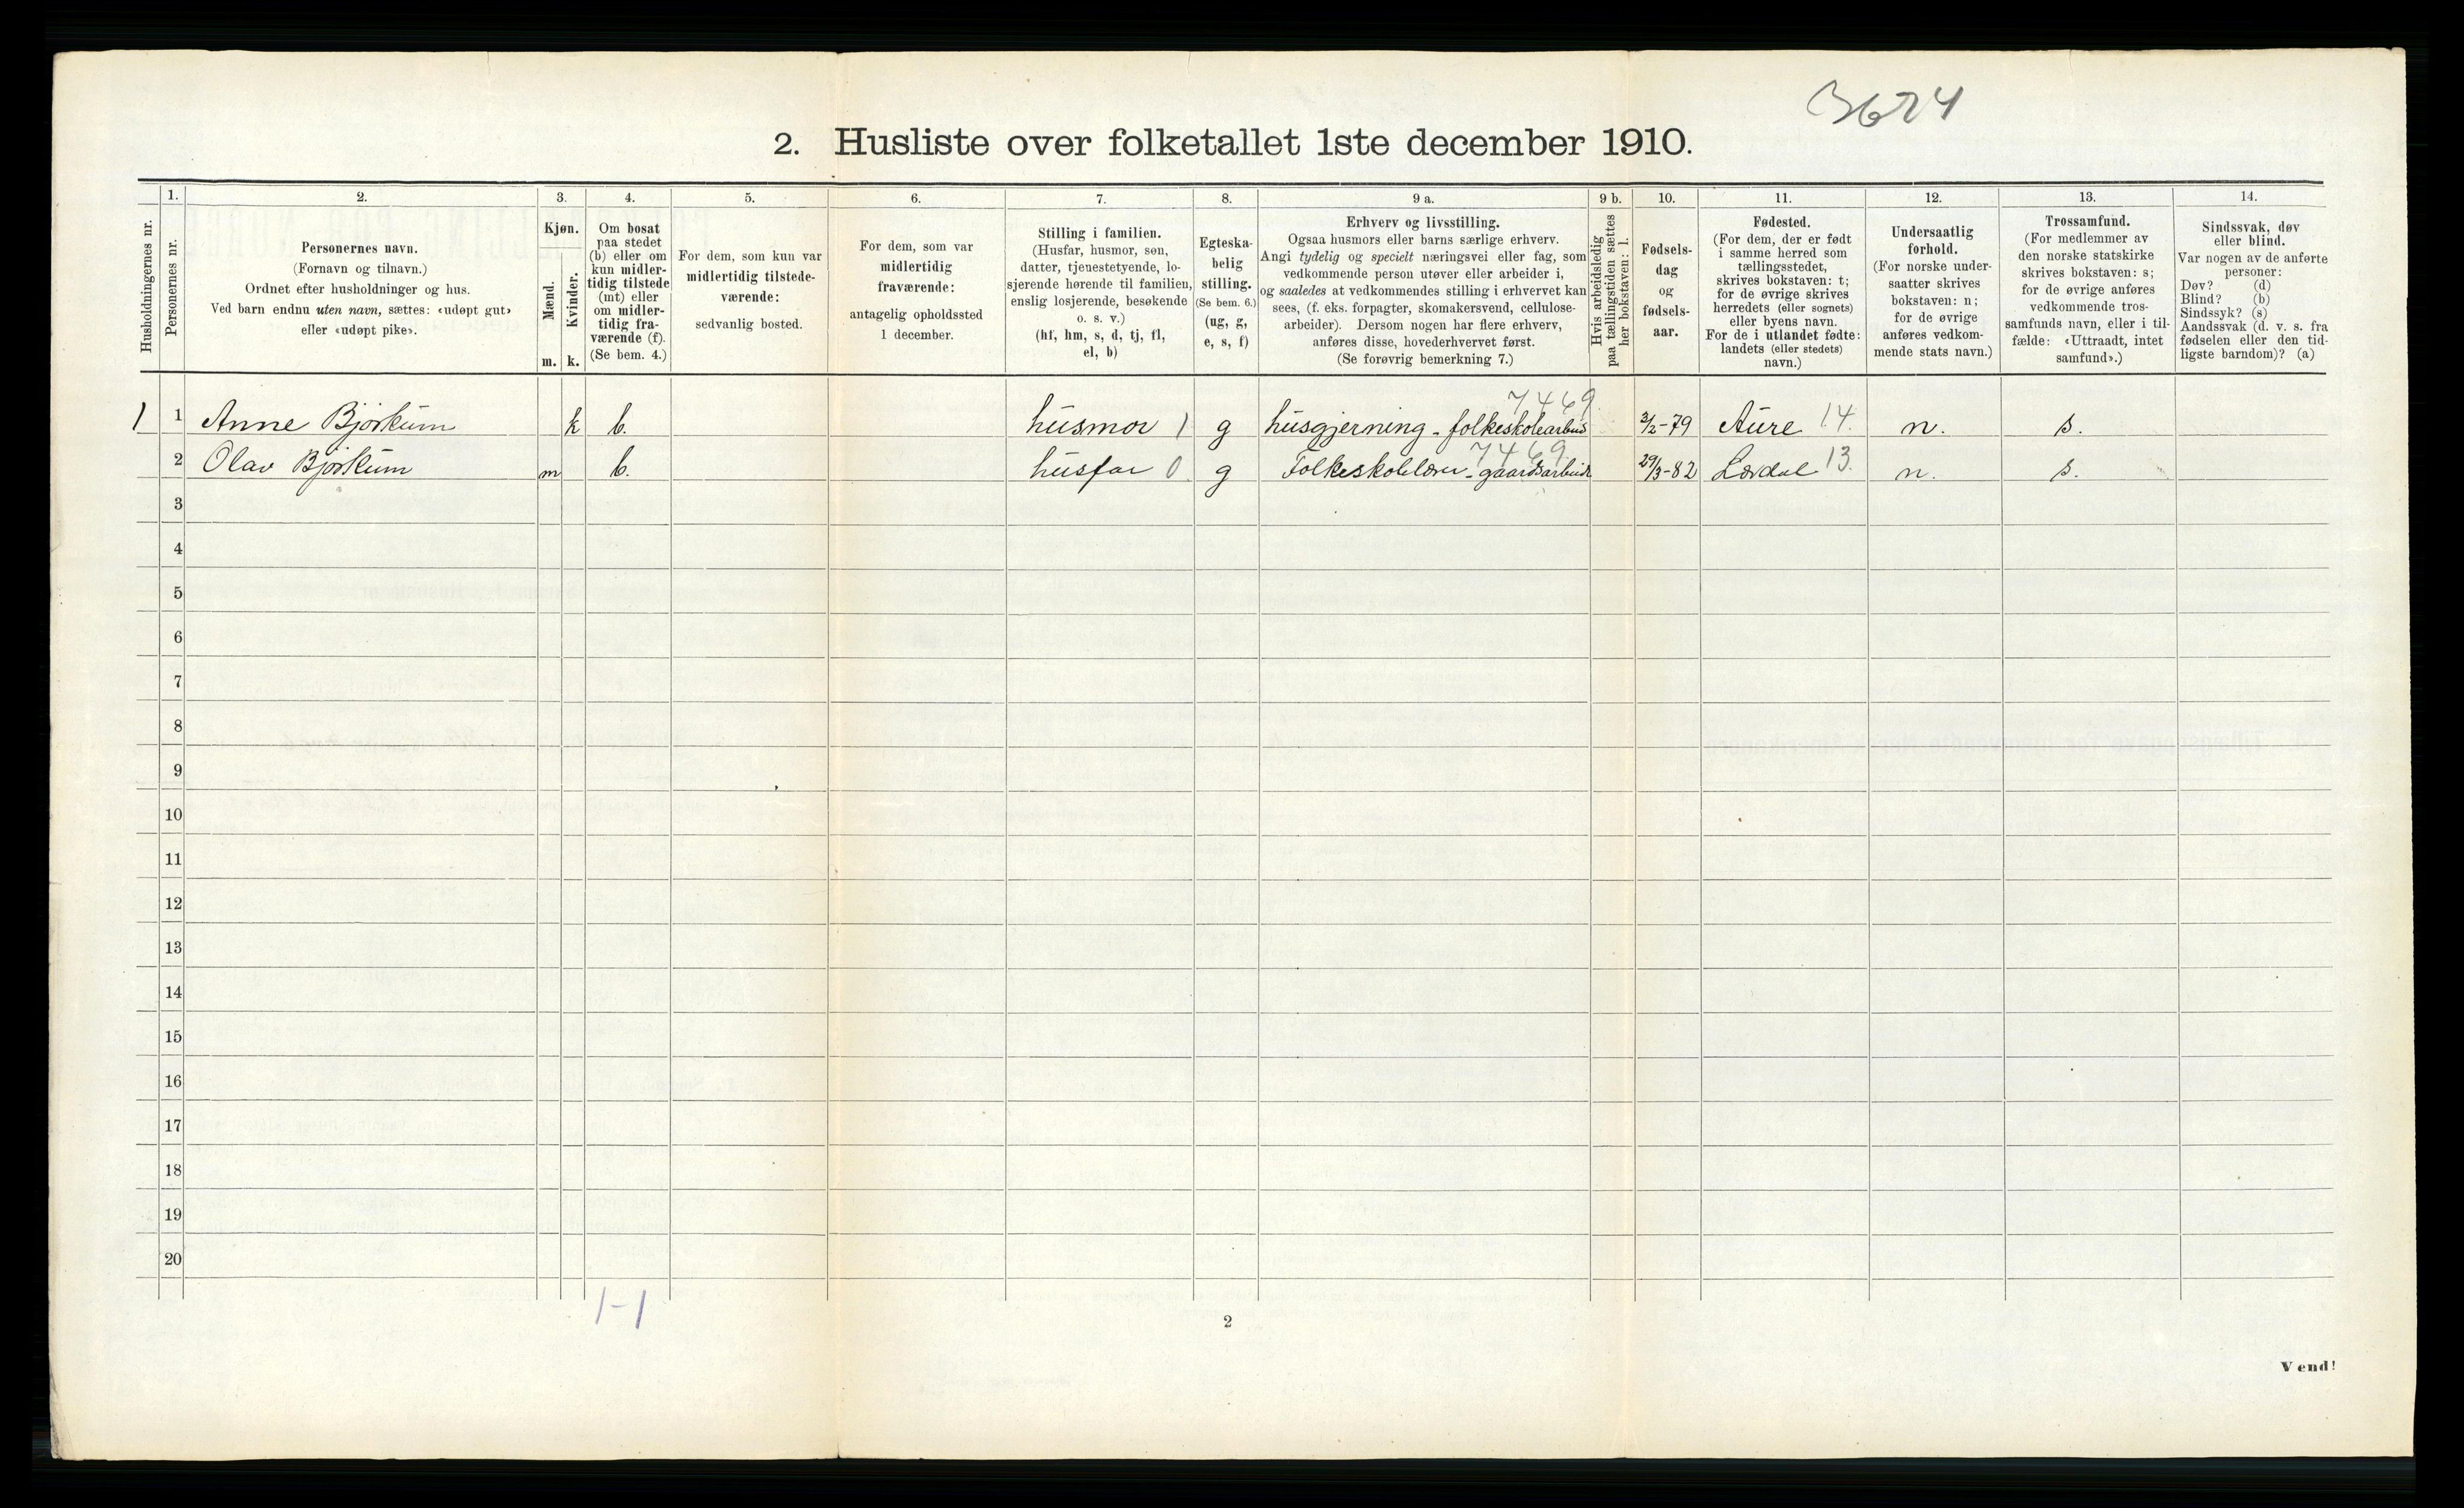 3674
2. Husliste over folketallet 1ste december 1910.
Husholdningernes nr.
1.
Personernes nr.
2.
Personernes navn.
(Fornavn og tilnavn.)
Ordnet efter husholdninger og hus.
Ved barn endnu uten navn, sættes: «udøpt gut»
eller «udøpt pike».
3.
Kjøn.
Mænd.
Kvinder.
m. k.
4.
Om bosat
paa stedet
(b) eller om
kun midler-
tidig tilstede
(mt) eller
om midler-
tidig fra-
værende (f).
(Se bem. 4.)
5.
For dem, som kun var
midlertidig tilstede-
værende:
sedvanlig bosted.
6.
For dem, som var
midlertidig
fraværende:
antagelig opholdssted
1 december.
7.
Stilling i familien.
(Husfar, husmor, søn,
datter, tjenestetyende, lo-
sjerende hørende til familien,
enslig losjerende, besøkende
o. s. v.)
(hf, hm, s, d, tj, fl,
el, b)
8.
Egteska-
belig
stilling.
(Se bem. 6.)
(ug, g,
e, s, f)
9 a.
Erhverv og livsstilling.
Ogsaa husmors eller barns særlige erhverv.
Angi tydelig og specielt næringsvei eller fag, som
vedkommende person utøver eller arbeider i,
og saaledes at vedkommendes stilling i erhvervet kan
sees, (f. eks. forpagter, skomakersvend, cellulose-
arbeider). Dersom nogen har flere erhverv,
anføres disse, hovederhvervet først.
(Se forøvrig bemerkning 7.)
9 b.
Hvis arbeidsledig
paa tællingstiden sættes
her bokstaven: l.
10.
Fødsels-
dag
og
fødsels-
aar.
11.
Fødested.
(For dem, der er født
i samme herred som
tællingsstedet,
skrives bokstaven: t;
for de øvrige skrives
herredets (eller sognets)
eller byens navn.
For de i utlandet fødte:
landets (eller stedets)
navn.)
12.
Undersaatlig
forhold.
(For norske under-
saatter skrives
bokstaven: n;
for de øvrige
anføres vedkom-
mende stats navn.)
13.
Trossamfund.
(For medlemmer av
den norske statskirke
skrives bokstaven: s;
for de øvrige anføres
vedkommende tros-
samfunds navn, eller i til-
fælde: «Uttraadt, intet
samfund».)
14.
Sindssvak, døv
eller blind.
Var nogen av de anførte
personer:
Døv? (d)
Blind? (b)
Sindssyk? (s)
Aandssvak (d. v. s. fra
fødselen eller den tid-
ligste barndom)? (a)
7469
1 1 Anne Bjørkum k b. husmor 1 g husgjerning - folkeskolearbeid 3/2-79 Aure 14. n. s.
7469
2 Olav Bjørkum m b. husfar 0 g Folkeskolelærer - gaardsarbeide 29/3-82 Lærdal 13. n. s.
3
4
5
6
7
8
9
10
11
12
13
14
15
16
17
18
19
20
1-1
2
Vend!